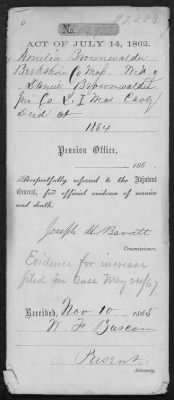 No.
ACT OF JULY 14, 1862.
Amelia Brownwalder
Berkshire Co Mass. Wid of
Daniel Brownwalder
Co L, 1 Mass Cavly
Died at
1864
Pension Office,
186 .
Respectfully referred to the Adjutant
General, for official evidence of service
and death.
Joseph H Barrett
Commissioner.
Evidence for increase
filed in case May /67
Received, Nov 10 1865
W. F. Bascom
Present
Attorney.